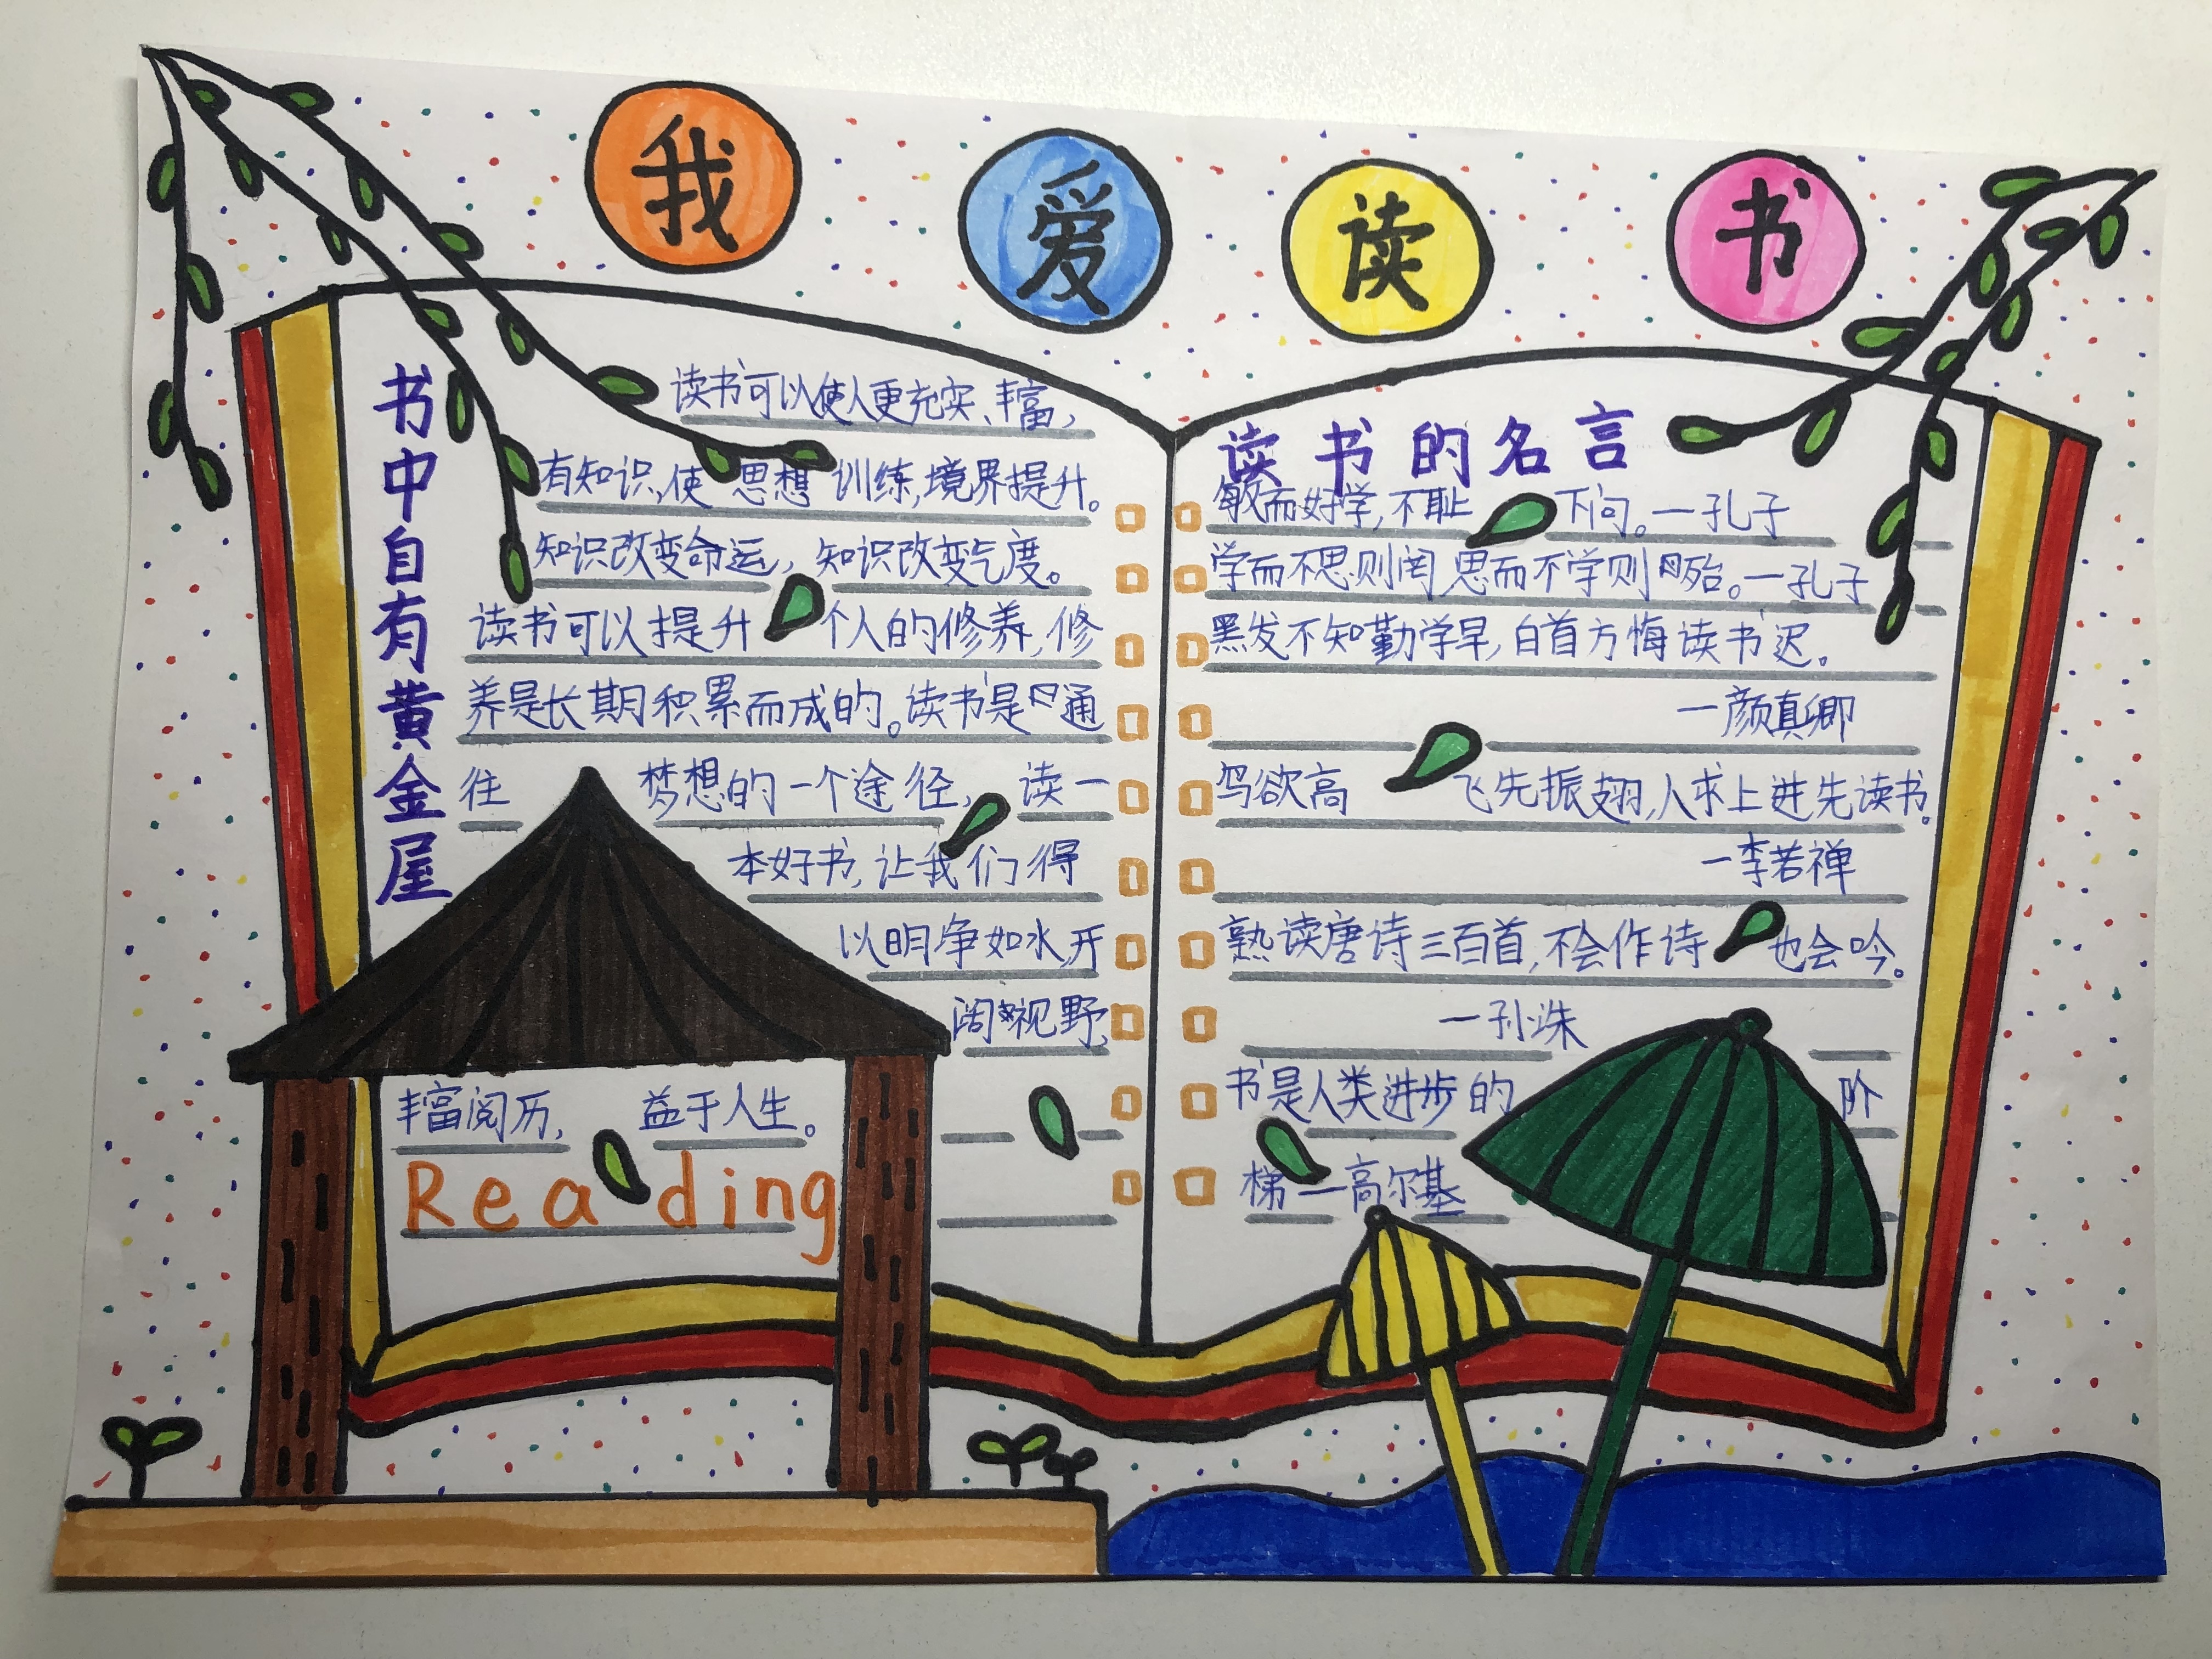 我爱读书
书中自有黄金屋
读书可以使人更充实、丰富,
有知识,使思想训练,境界提升。
知识改变命运,知识改变气度。
读书可以提升个人的修养,修
养是长期积累而成的。读书是通
往梦想的一个途径,读一
本好书,让我们得
以明净如水,开
阔视野,
丰富阅历,益于人生。
Reading
读书的名言
敏而好学,不耻下问。一孔子
学而不思则罔,思而不学则殆。一孔子
黑发不知勤学早,白首方悔读书迟。
一颜真卿
鸟欲高飞先振翅,人求上进先读书。
一李若禅
熟读唐诗三百首,不会作诗也会吟。
一孙洙
书是人类进步的阶
梯一高尔基